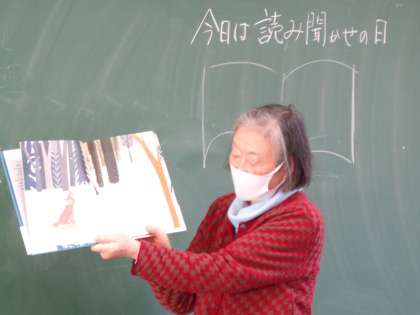 今日は読み聞かせの日